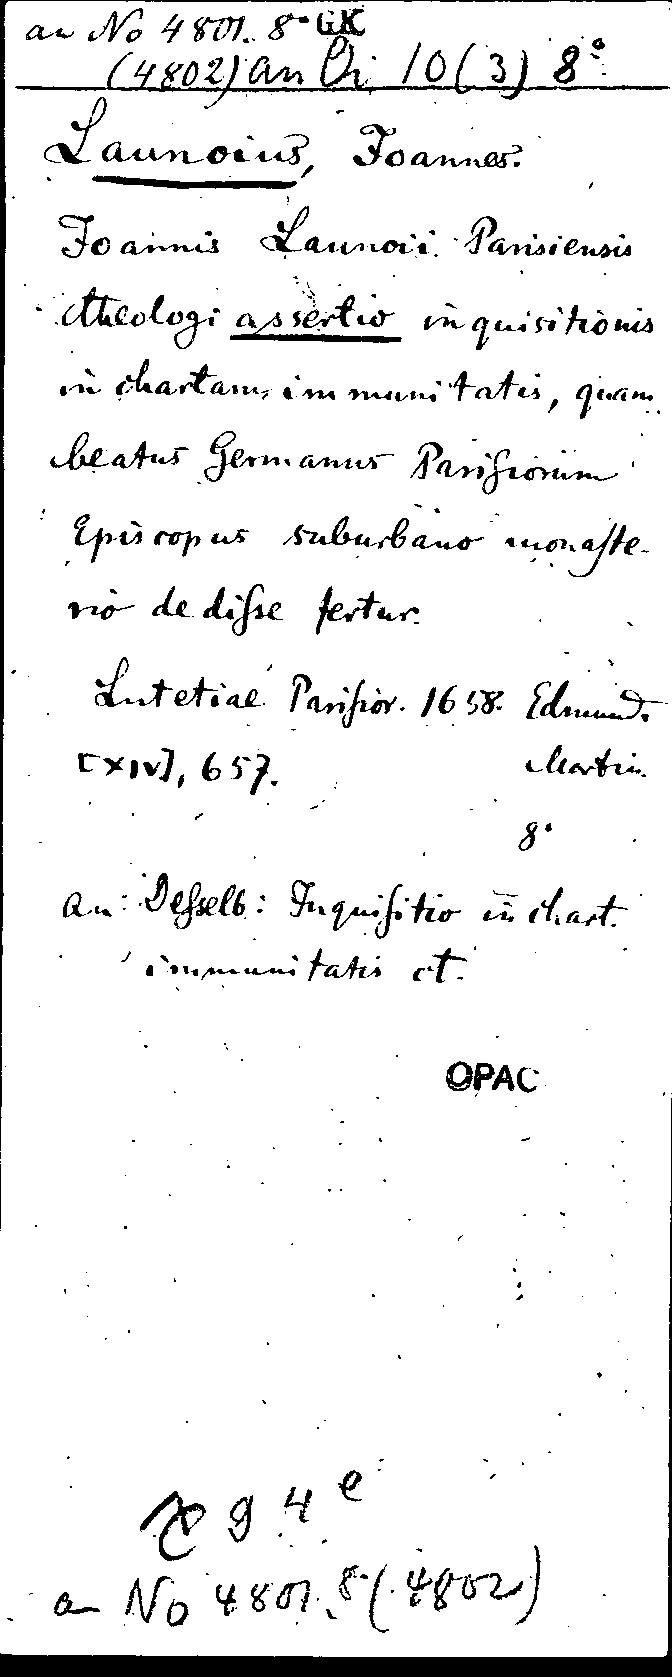 an No 4801. 8° GK
(4802) an Di 10 (3) 8°
Launoius, Joannes.
Joannis Launoii Parisiensis
theologi assertio inquisitionis
in chartam immunitatis, quam
beatus Germanus Parisiorum
Episcopus suburbano monaste-
rio dedisse fertur.
Lutetiae Parisior. 1658. Edmund.
[XIV], 657. Martin.
8°
an: Desselb: Inquisitio in chart.
immunitatis et.
OPAC
g 4 e
an No 4801. 8 (4802)